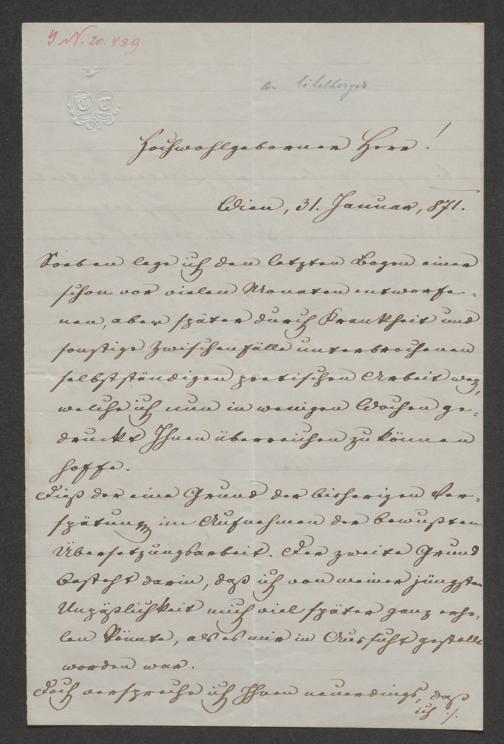 I. N. 20.489
An Eitelberger
C T
Hochwohlgeborner Herr!
Wien, 31. Januar, 871.
Soeben lege ich den letzten Bogen einer
schon vor vielen Monaten entworfe-
nen, aber später durch Krankheit und
sonstige Zwischenfälle unterbrochenen
selbstständigen poetischen Arbeit weg,
welche ich nun in wenigen Wochen ge-
druckt Ihnen überreichen zu können
hoffe.
Dieß der eine Grund der bisherigen Ver-
spätung im Aufnehmen der bewußten
Übersetzungsarbeit. Der zweite Grund
besteht darin, daß ich von meiner jüngsten
Unpäßlichkeit mich viel später ganz erho-
len konnte, als es mir in Aussicht gestellt
worden war.
Doch verspreche ich Ihnen neuerdings, daß
ich ./.